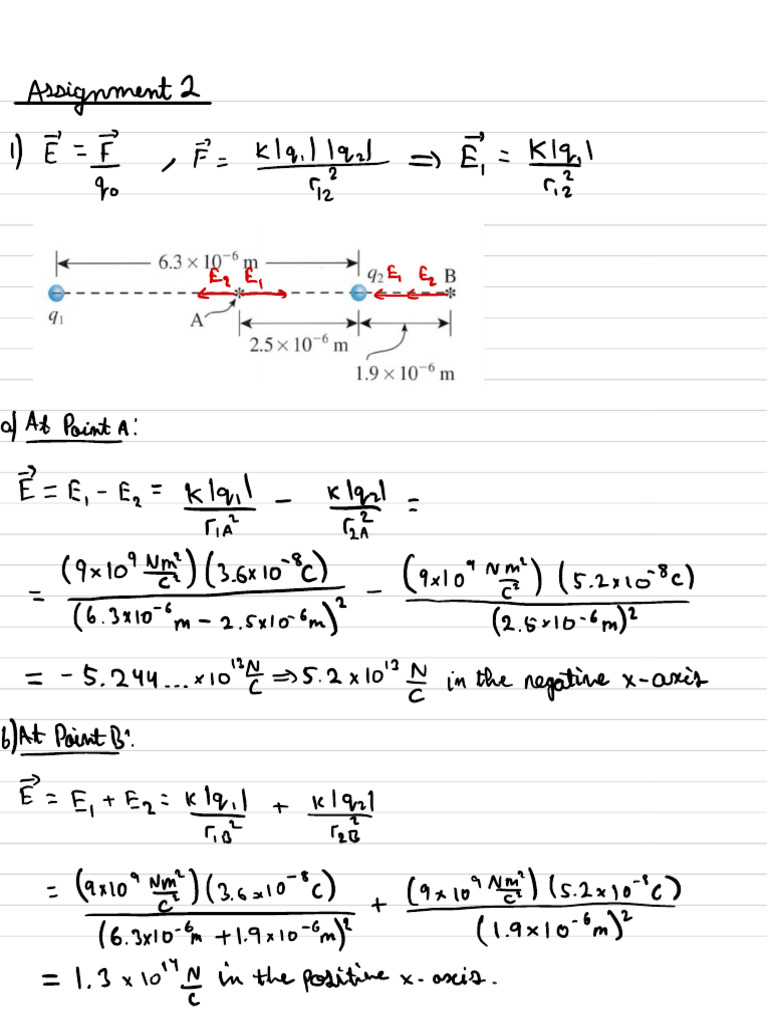 Assignment 2
1) E⃗ = F⃗/q₀ , F⃗ = K|q₁||q₂|/r₁₂² ⇒ E⃗₁ = K|q₁|/r₁₂²
6.3 × 10⁻⁶ m
E₂ E₁ q₂ E₁ E₂ B
q₁ A
2.5 × 10⁻⁶ m
1.9 × 10⁻⁶ m
a) At Point A:
E⃗ = E₁ - E₂ = K|q₁|/r₁A² - K|q₂|/r₂A² =
= (9×10⁹ Nm²/C²)(3.6×10⁻⁸C)/(6.3×10⁻⁶m - 2.5×10⁻⁶m)² - (9×10⁹ Nm²/C²)(5.2×10⁻⁸C)/(2.5×10⁻⁶m)²
= -5.244...×10¹³ N/C ⇒ 5.2×10¹³ N/C in the negative x-axis
b) At Point B:
E⃗ = E₁ + E₂ = K|q₁|/r₁B² + K|q₂|/r₂B²
= (9×10⁹ Nm²/C²)(3.6×10⁻⁸C)/(6.3×10⁻⁶m + 1.9×10⁻⁶m)² + (9×10⁹ Nm²/C²)(5.2×10⁻⁸C)/(1.9×10⁻⁶m)²
= 1.3×10¹⁴ N/C in the positive x-axis.